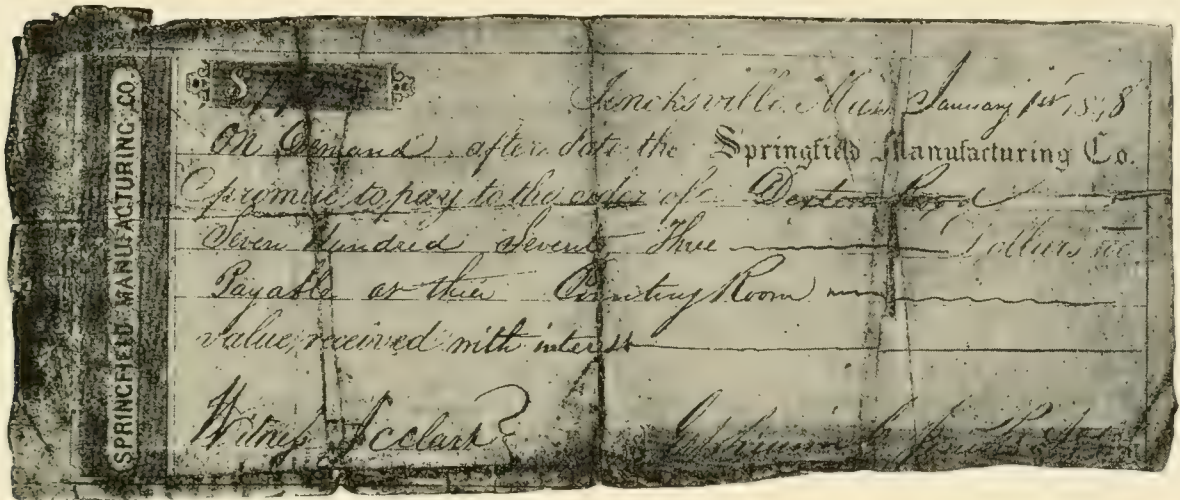 SPRINGFIELD MANUFACTURING CO.
$
Jencksville Mass January 1st
On Demand after date the Springfield Manufacturing Co.
promise to pay to the order of Dexter
Seven Hundred Seventy Three Dollars
Payable at thier Counting Room
value received with interest
Witness J C Clark